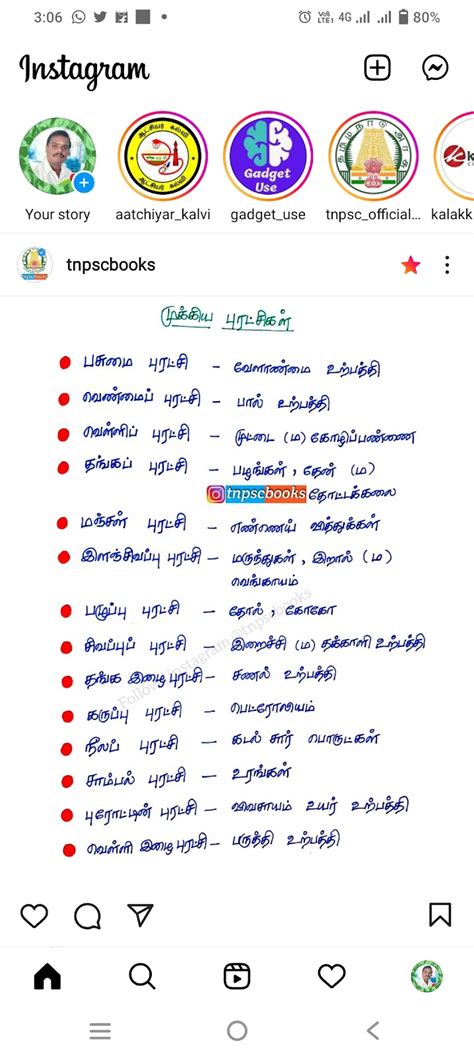 3:06
4G
80%
Instagram
ஆட்சியர் கல்வி
Gadget
Use
தமிழ்நாடு அரசு
Your story
aatchiyar_kalvi
gadget_use
tnpsc_official...
kalakk
tnpscbooks
முக்கிய புரட்சிகள்
பசுமை புரட்சி – வேளாண்மை உற்பத்தி
வெண்மைப் புரட்சி – பால் உற்பத்தி
வெள்ளிப் புரட்சி – முட்டை (ம) கோழிப்பண்ணை
தங்கப் புரட்சி – பழங்கள், தேன் (ம)
tnpscbooks தோட்டக்கலை
மஞ்சள் புரட்சி – எண்ணெய் வித்துக்கள்
இளஞ்சிவப்பு புரட்சி – மருந்துகள், இறால் (ம)
வெங்காயம்
பழுப்பு புரட்சி – தோல், கோகோ
சிவப்புப் புரட்சி – இறைச்சி (ம) தக்காளி உற்பத்தி
தங்க இழை புரட்சி – சணல் உற்பத்தி
கருப்பு புரட்சி – பெட்ரோலியம்
நீலப் புரட்சி – கடல் சார் பொருட்கள்
சாம்பல் புரட்சி – உரங்கள்
புரோட்டின் புரட்சி – விவசாயம் உயர் உற்பத்தி
வெள்ளி இழை புரட்சி – பருத்தி உற்பத்தி